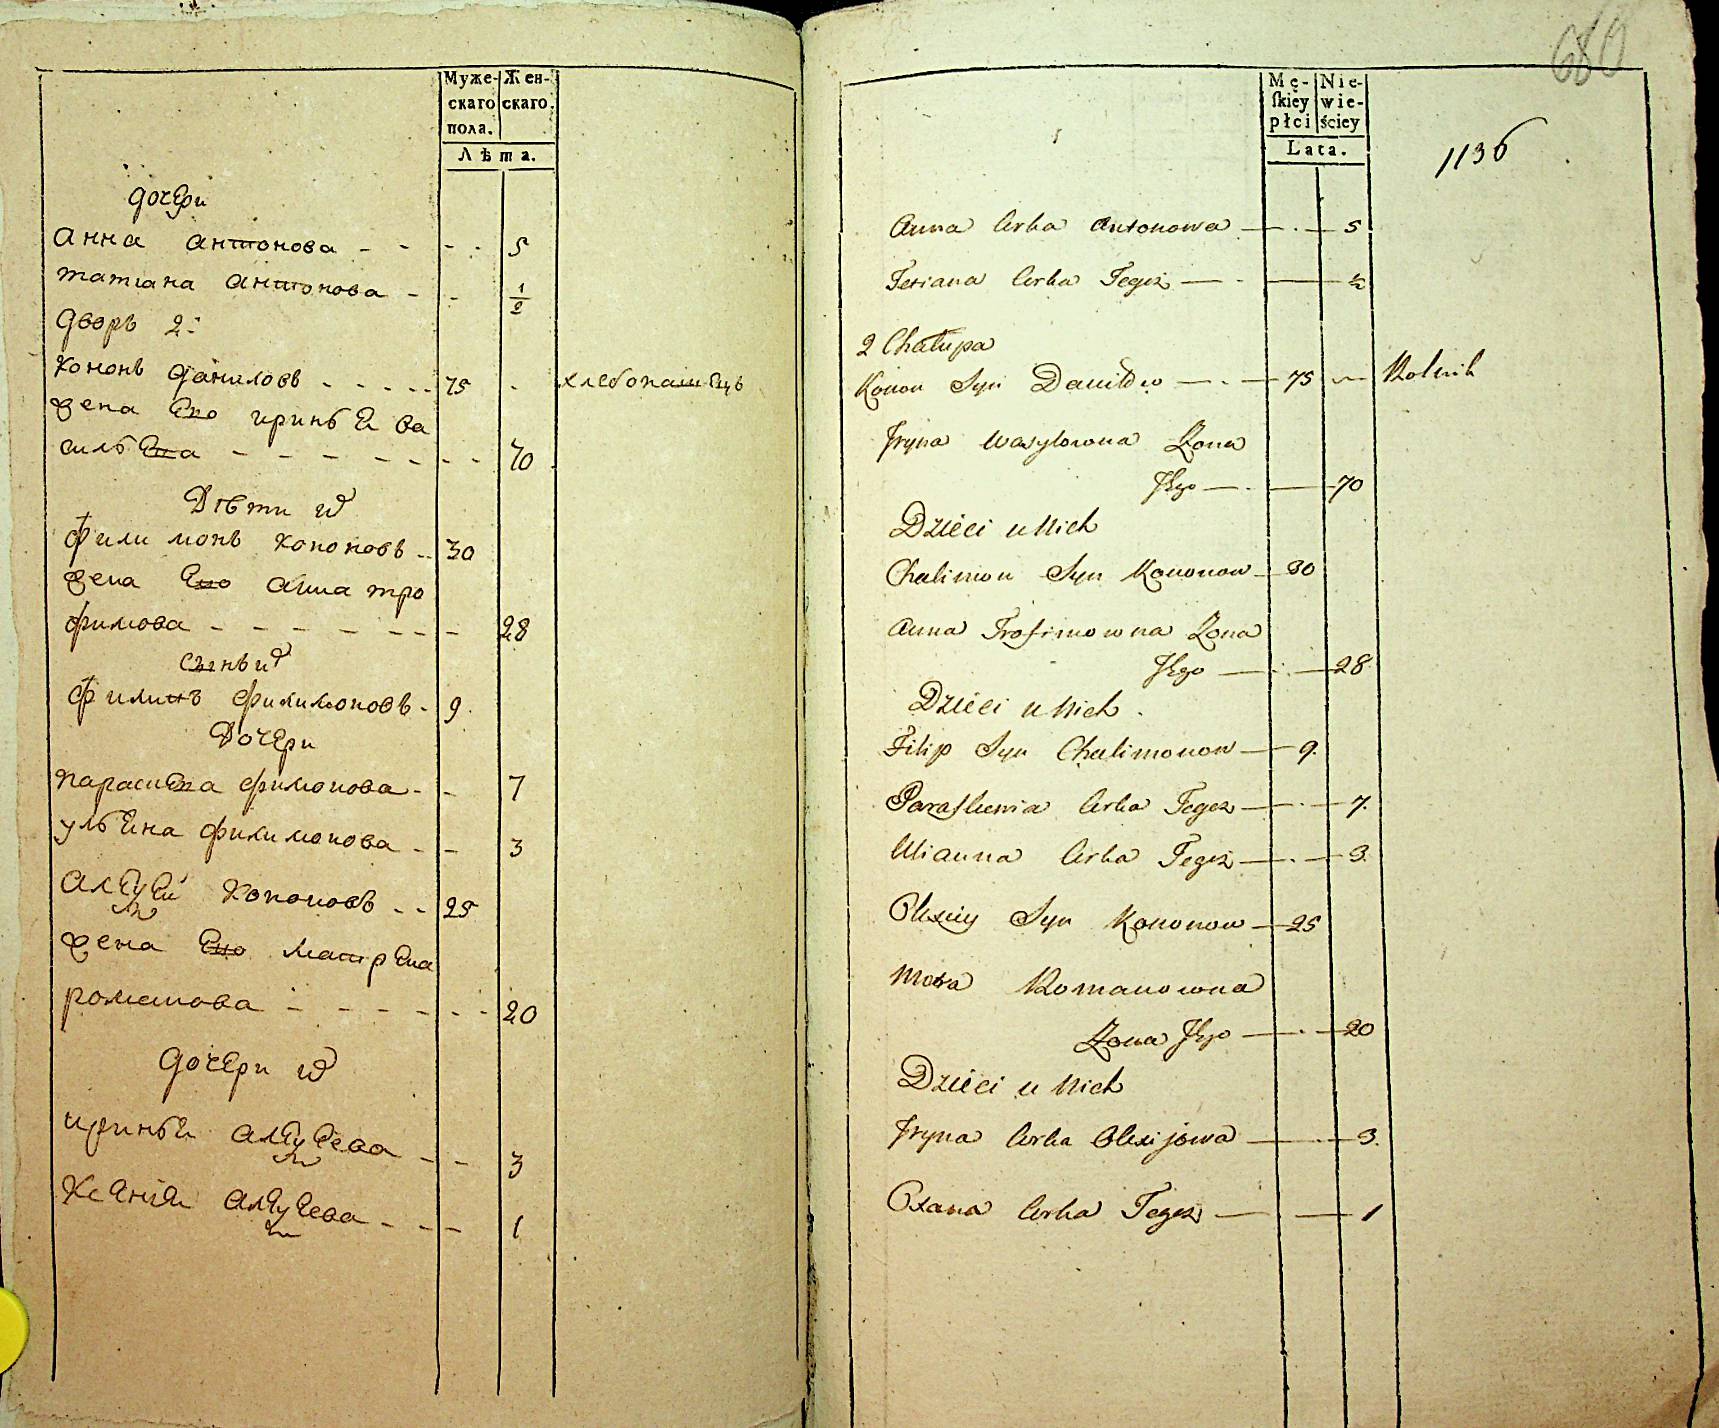 Муже- Жен-
скаго скаго.
пола.
Лѣта.
дочери
анна антонова - - - - 5
татиана антонова - - 1/2
дворъ 2:
кононъ даниловъ - - - - - 75 - хлебопашецъ
жена ево иринья ва
сильева - - - - - - - - 70
Дѣти их
филимонъ кононовъ - - 30
жена ево анна тро
фимова - - - - - - - - 28
сынъ их
филипъ филимоновъ - 9
Дочери
парасиева фимонова - - 7
ульяна филимонова - - 3
алеѯей кононовъ - - 25
жена ево матрена
романова - - - - - - - 20
дочери их
иринья алеѯеева - - 3
ксения алеѯеева - - - 1
680
Mę- Nie-
ſkiey wie-
płci ściey
Lata.
1136
Anna Corka Antonowa — . — 5
Tetiana Corka Tegoż — - — 1/2
2 Chałupa
Konon Syn Daniłow — . — 75 — Rolnik
Jryna Wasylowna Żona
Jego — . — 70
Dzieci u Nich
Chalimon Syn Kononow — 30
Anna Trofimowna Żona
Jego — . — 28
Dzieci u Nich .
Filip Syn Chalimonow — 9.
Paraskewia Corka Tegoż — . — 7.
Ulianna Corka Tegoż — . — 3.
Olexiy Syn Kononow — 25
Motra Romanowna
Żona Jego — . — 20
Dzieci u Nich
Jryna Corka Olexijowa — 3.
Oxana Corka Tegoż — — 1